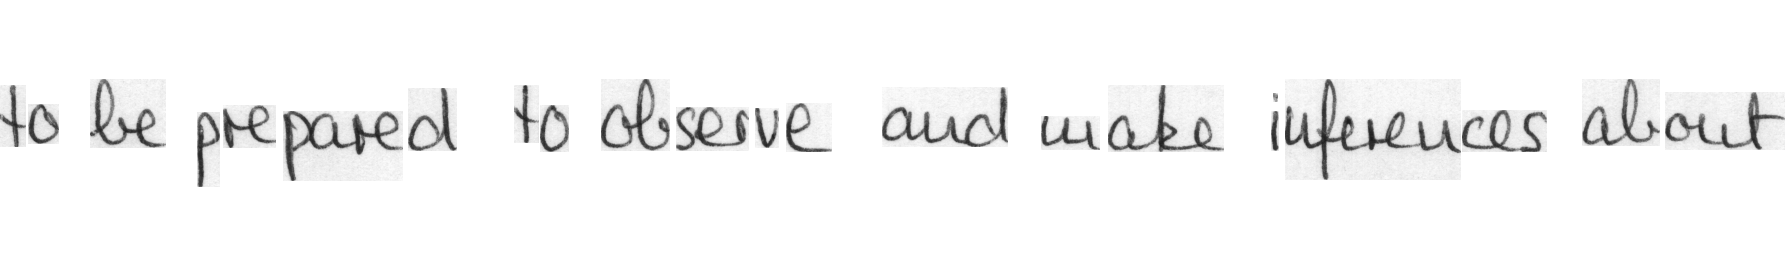 to be prepared to observe and make inferences about